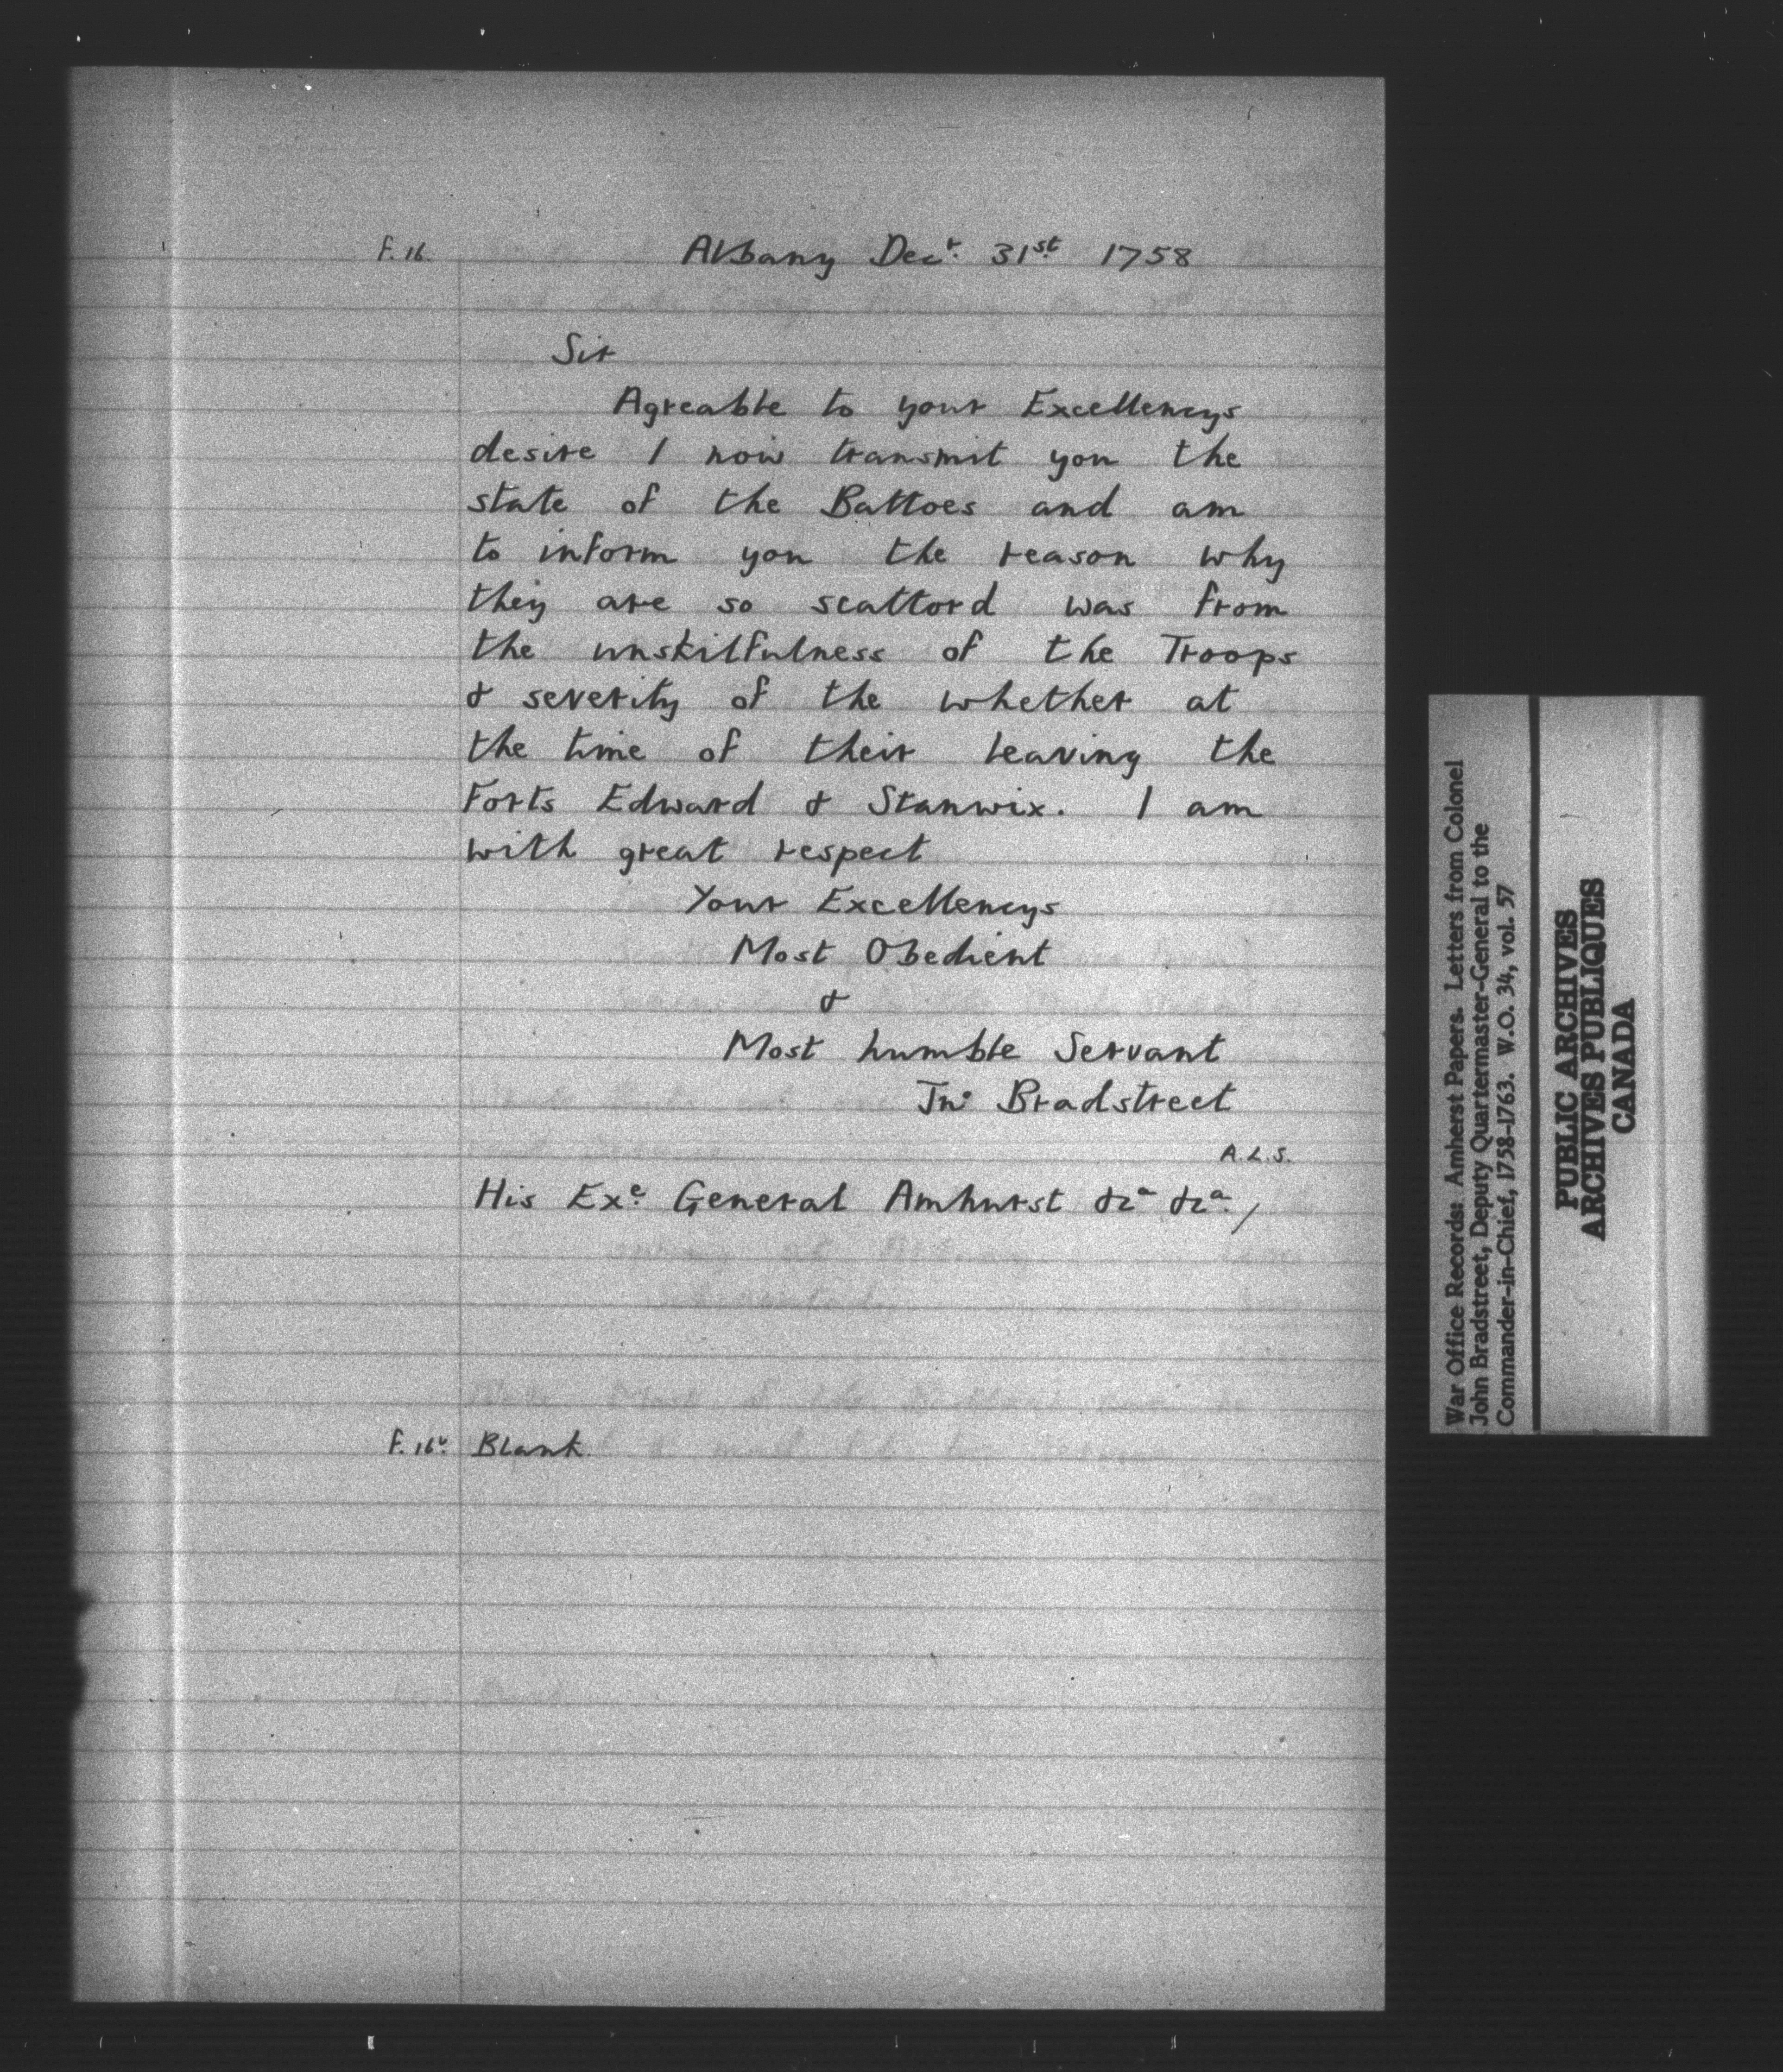 F. 16
Albany Decr. 31st. 1758
Sir
Agreable to your Excellencys
desire I now transmit you the
state of the Battoes and am
to inform you the reason why
they are so scattord was from
the unskilfulness of the Troops
& severity of the whether at
the time of their leaving the
Forts Edward & Stanwix. I am
with great respect
Your Excellencys
Most Obedient
&
Most humble Servant
Jno. Bradstreet
A.L.S.
His Exe. General Amhurst &ca &ca./
F. 16v. Blank.
War Office Records: Amherst Papers. Letters from Colonel
John Bradstreet, Deputy Quartermaster-General to the
Commander-in-Chief, 1758-1763. W.O. 34, vol. 57
PUBLIC ARCHIVES
ARCHIVES PUBLIQUES
CANADA